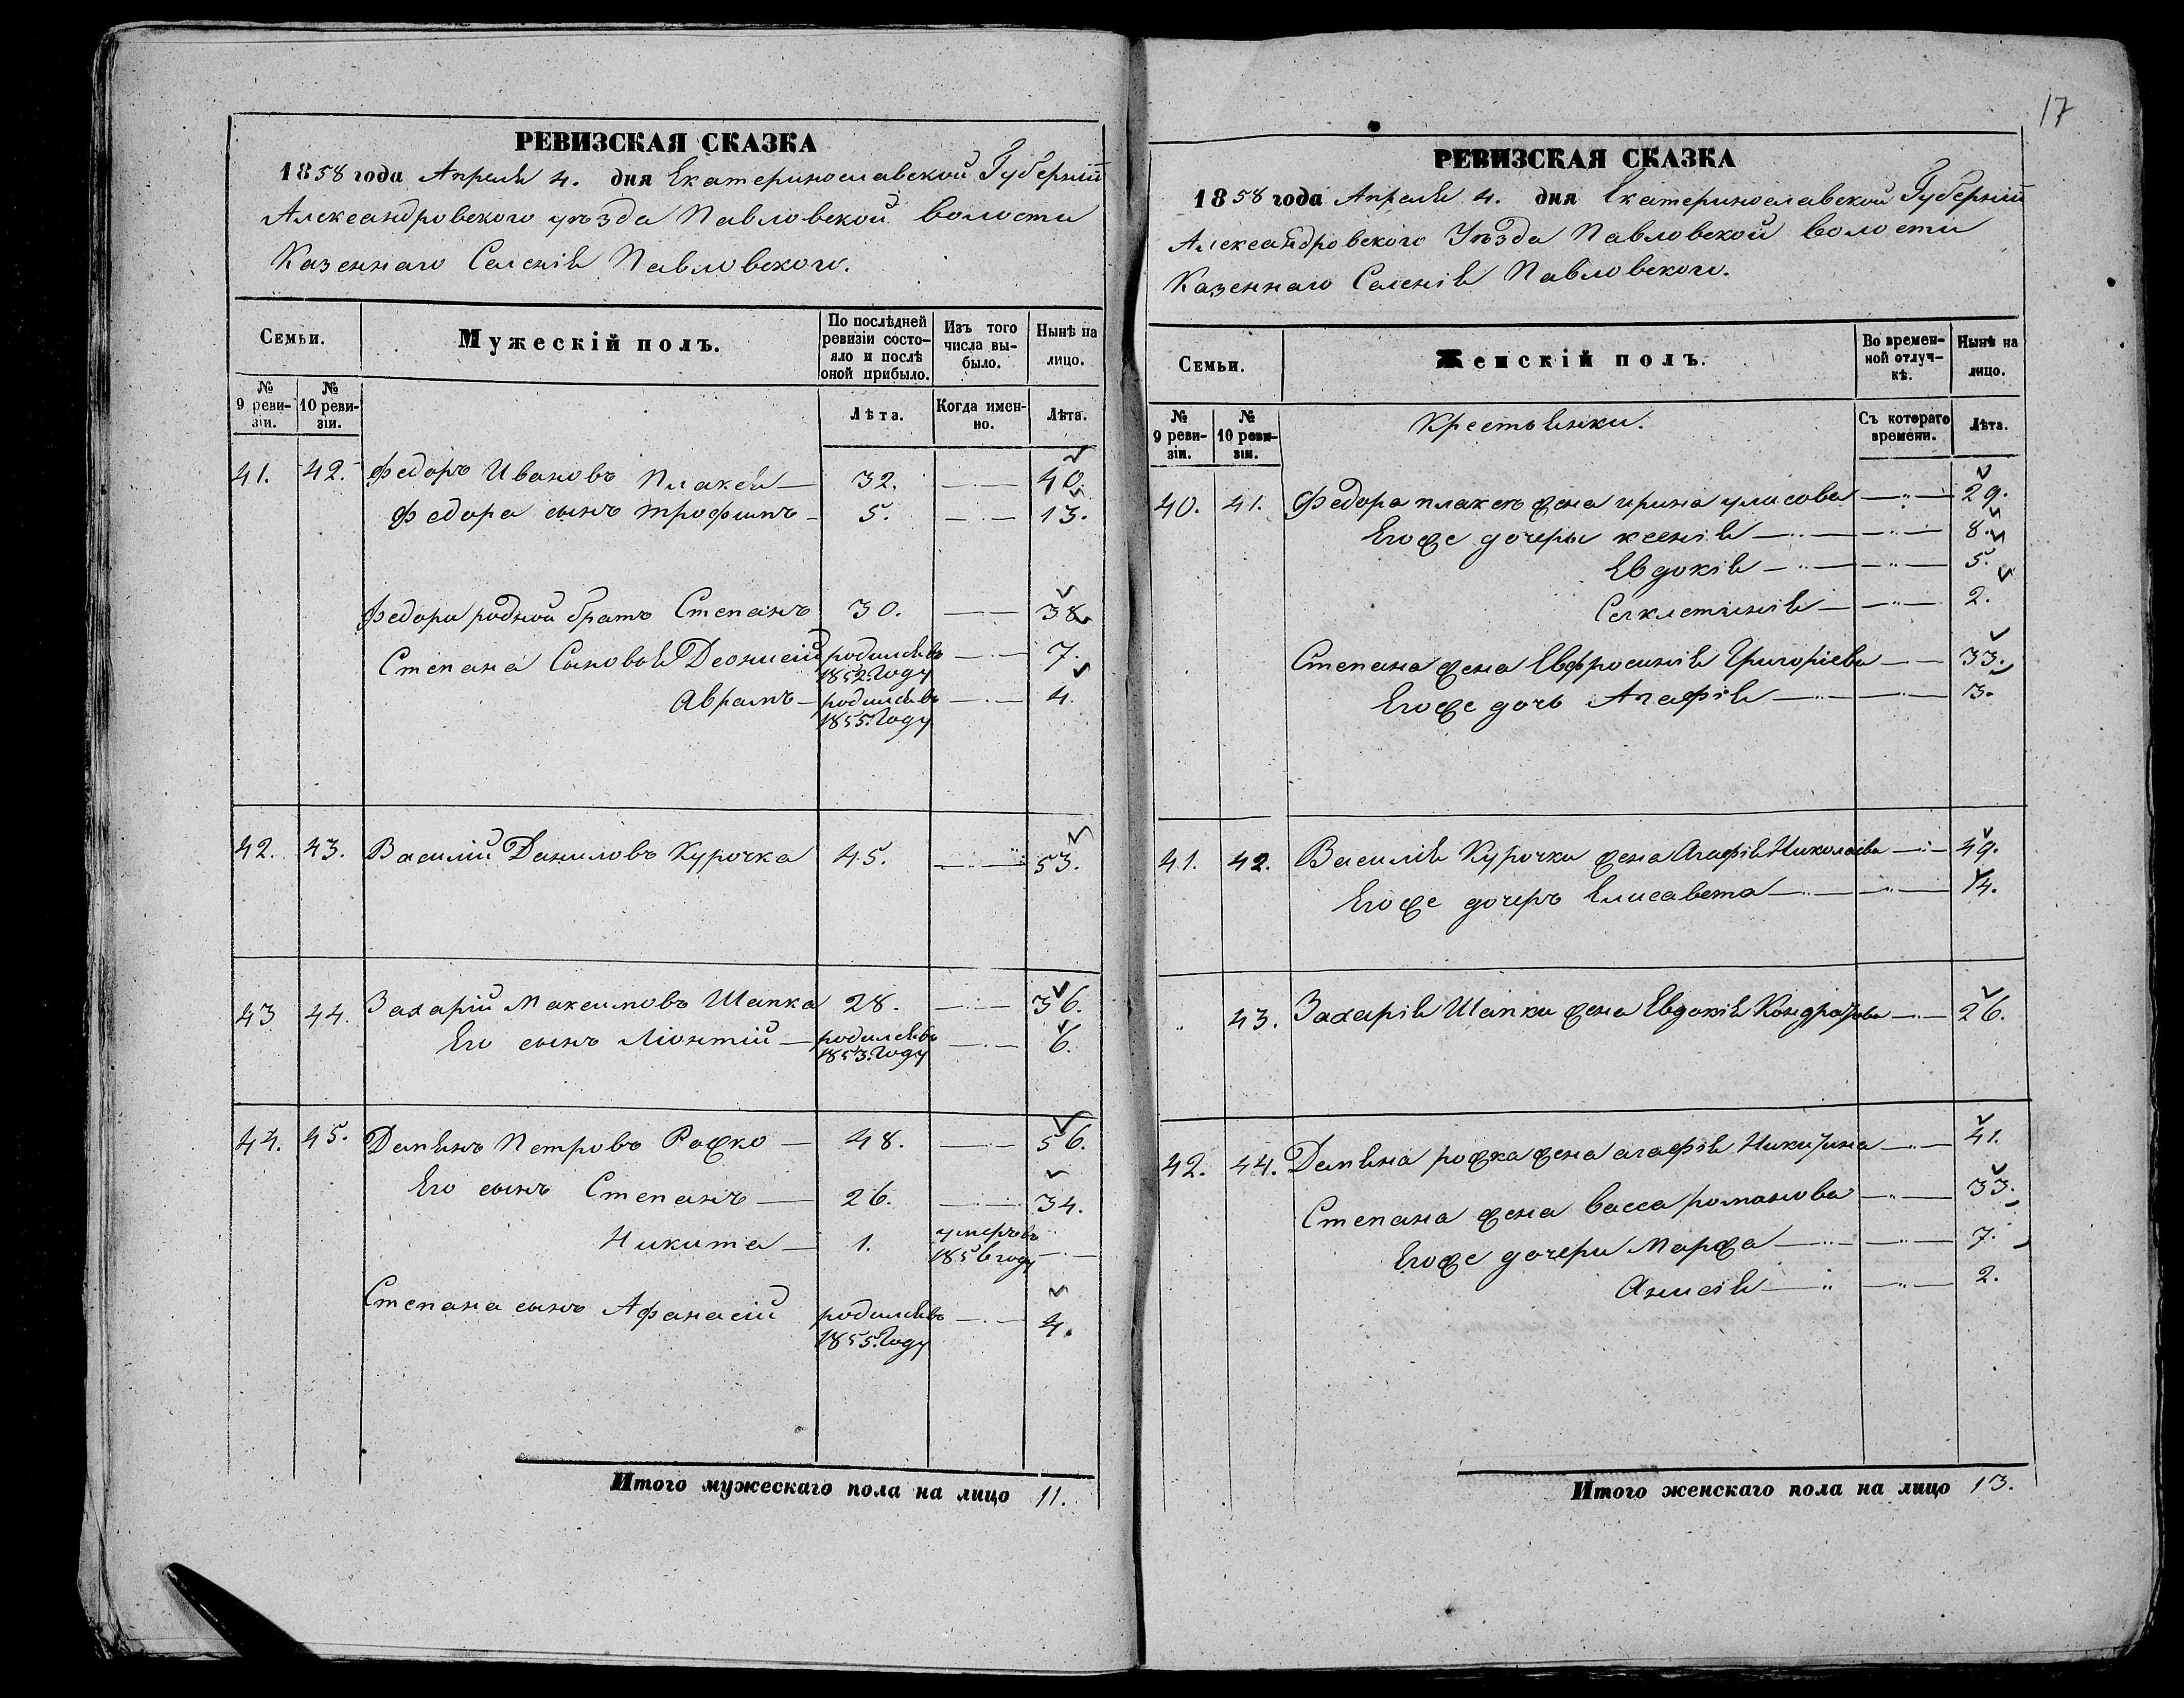 РЕВИЗСКАЯ СКАЗКА
1858 года Апреля 4. дня Екатеринославской Губерніи
Александровскаго уѣзда Павловской волости
Казеннаго Селенія Павловскаго.
Семьи. Мужескій полъ. По послѣдней ревизіи состояло и послѣ оной прибыло. Изъ того числа выбыло. Нынѣ на лицо.
№ 9 ревизіи. № 10 ревизіи. Лѣта. Когда именно. Лѣта.
41. 42. Федоръ Ивановъ Плаксы 32. 40.
Федора сынъ Трофимъ 5. 13.
Федора родной братъ Степанъ 30. 38.
Степана Сыновья Деонисій родился въ 1852. Году 7.
Аврамъ родился въ 1855. Году 4.
42. 43. Василій Даниловъ Курочка 45. 53.
43 44. Захарій Максимовъ Шапка 28. 36.
Его сынъ Ліонтій родился въ 1853. Году 6.
44. 45. Демянъ Петровъ Рожко 48. 56.
Его сынъ Степанъ 26. 34.
Никита 1. умеръ въ 185 году
Степана сынъ Афанасій родился въ 1855. Году 4.
Итого мужескаго пола на лицо 11.
17
РЕВИЗСКАЯ СКАЗКА
1858 года Апреля 4. дня Екатеринославской Губерніи
Александровскаго Уѣзда Павловской волости
Казеннаго Селенія Павловскаго.
Семьи. Женскій полъ. Во временной отлучкѣ. Нынѣ на лицо.
№ 9 ревизіи. № 10 ревизіи. Крестьянки. Съ котораго времени. Лѣта.
40. 41. Федора плаксы жена ирина улисова 29.
Егоже дочеры ксенія 8.
Евдокія 5.
2.
Степана жена Евфросинія Григоріева 33.
Егоже дочь Агафія 3.
41. 42. Василія Курочки жена Агафія Николаева 49.
Егоже дочерь Елисавета 14.
" 43. Захарія Шапки жена Евдокія Кондратова 26.
42. 44. Демяна рожка жена агафія Никитина 41.
Степана жена васса романова 33.
Егоже дочери Марфа 7.
Анисія 2.
Итого женскаго пола на лицо 13.